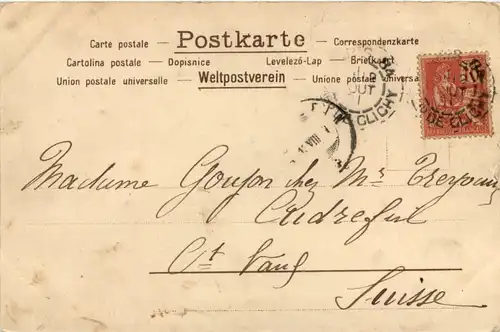 Carte postale — Postkarte — Correspondenzkarte
Cartolina postale — Dopisnice Levelező-Lap — Briefkaart
Union postale universelle — Weltpostverein — Unione postale universa
CLICHY
DE CLICHY
Madame Goujon chez Mr
Ct Vaud
Suisse